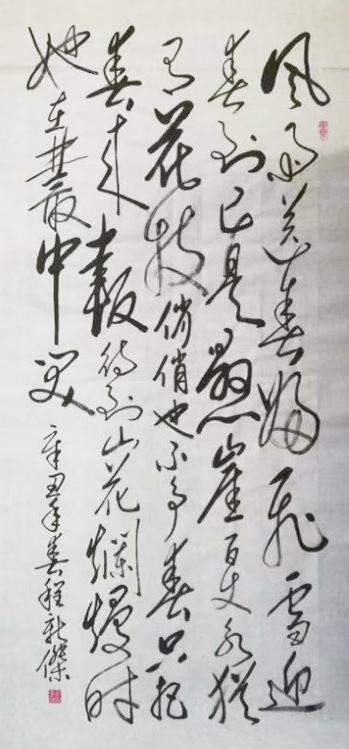 风雨送春歸飛雪迎
春到已是懸崖百丈冰犹
有花枝俏俏也不争春只把
春来報待到山花爛熳时
她在叢中笑
辛丑年春程新傑